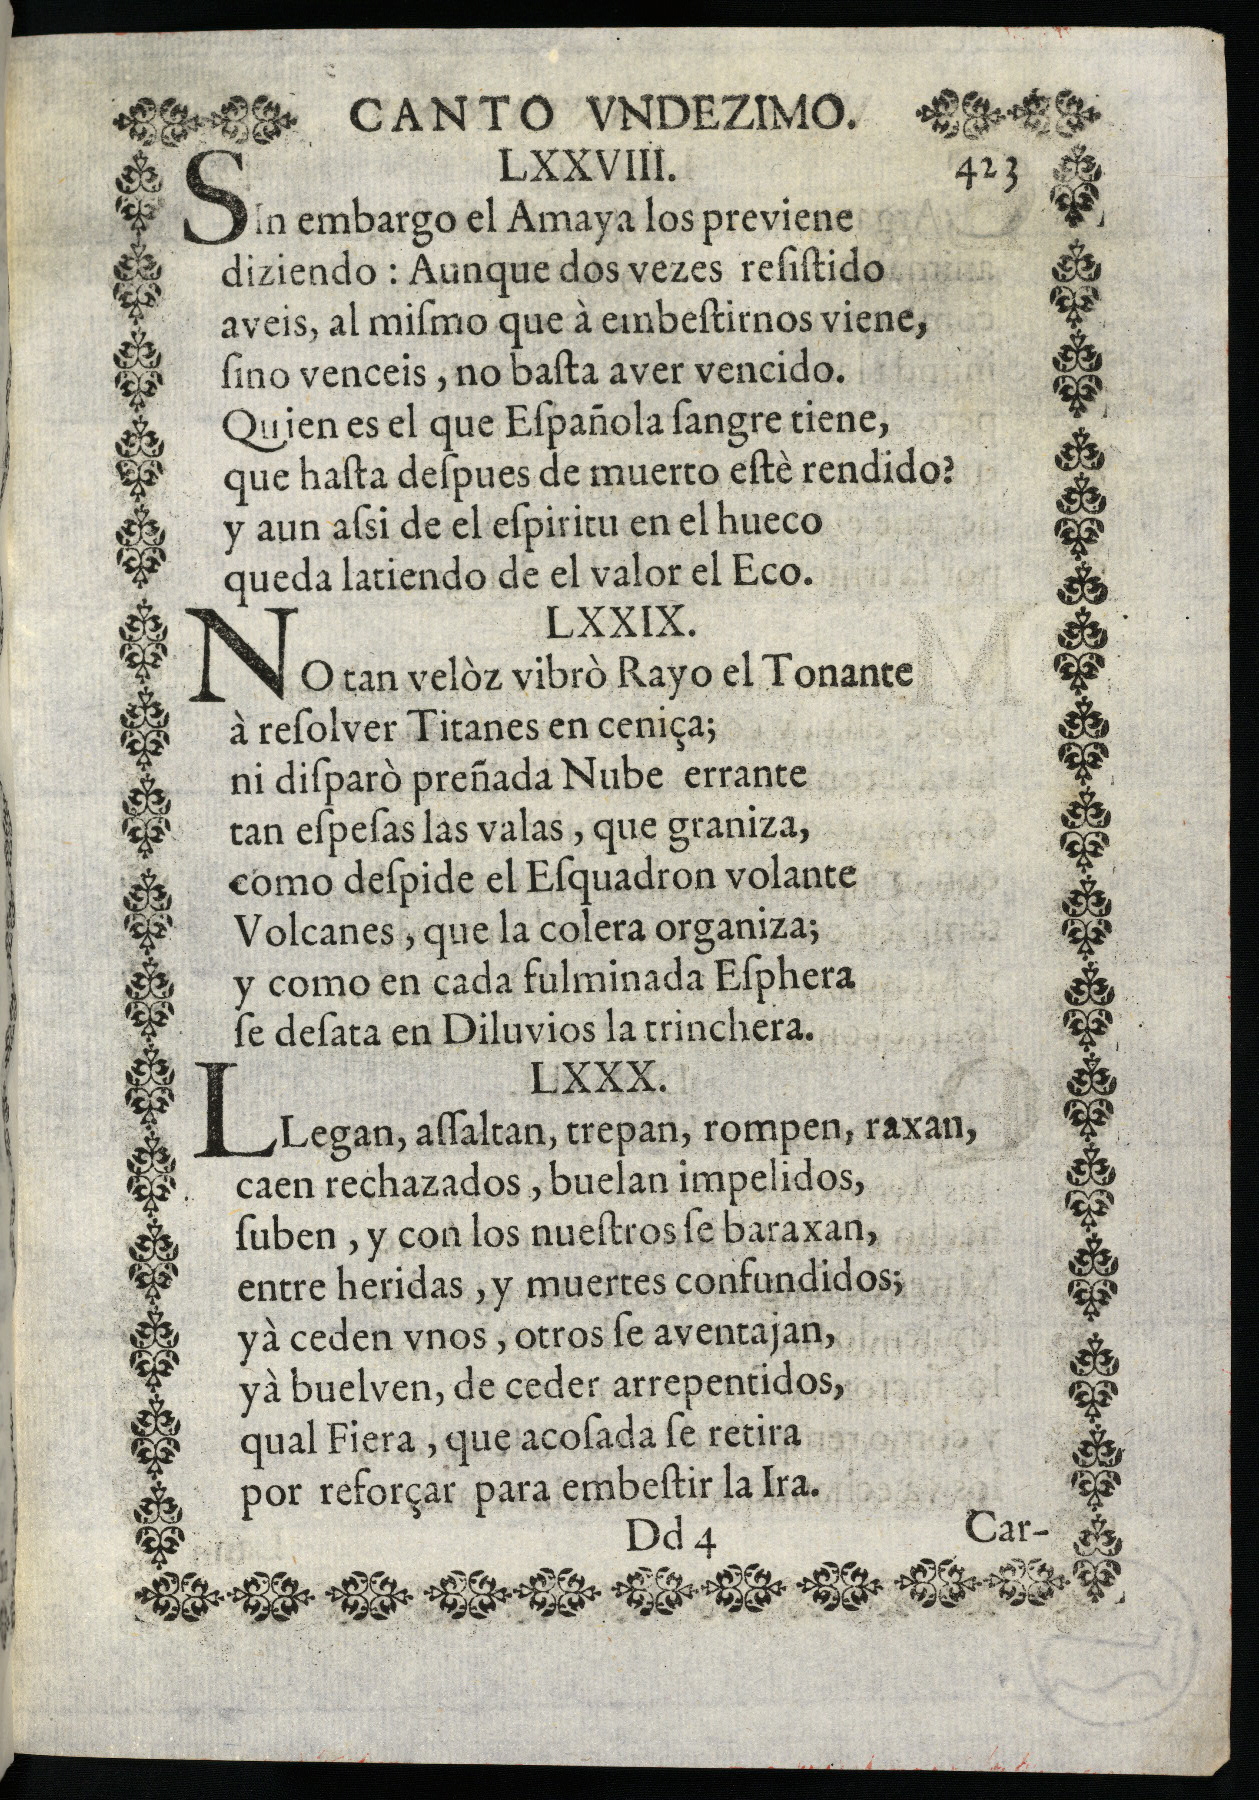 CANTO VNDEZIMO.
LXXVIII. 423
SIn embargo el Amaya los previene
diziendo : Aunque dos vezes reſiſtido
aveis, al miſmo que à embeſtirnos viene,
ſino venceis , no baſta aver vencido.
Quien es el que Eſpañola ſangre tiene,
que haſta deſpues de muerto eſtè rendido?
y aun aſsi de el eſpiritu en el hueco
queda latiendo de el valor el Eco.
LXXIX.
NO tan velòz vibrò Rayo el Tonante
à reſolver Titanes en ceniça;
ni diſparò preñada Nube errante
tan eſpeſas las valas , que graniza,
como deſpide el Eſquadron volante
Volcanes , que la colera organiza;
y como en cada fulminada Eſphera
ſe deſata en Diluvios la trinchera.
LXXX.
LLegan, aſſaltan, trepan, rompen, raxan,
caen rechazados , buelan impelidos,
ſuben , y con los nueſtros ſe baraxan,
entre heridas , y muertes confundidos;
yà ceden vnos , otros ſe aventajan,
yà buelven, de ceder arrepentidos,
qual Fiera , que acoſada ſe retira
por reforçar para embeſtir la Ira.
Dd 4 Car-